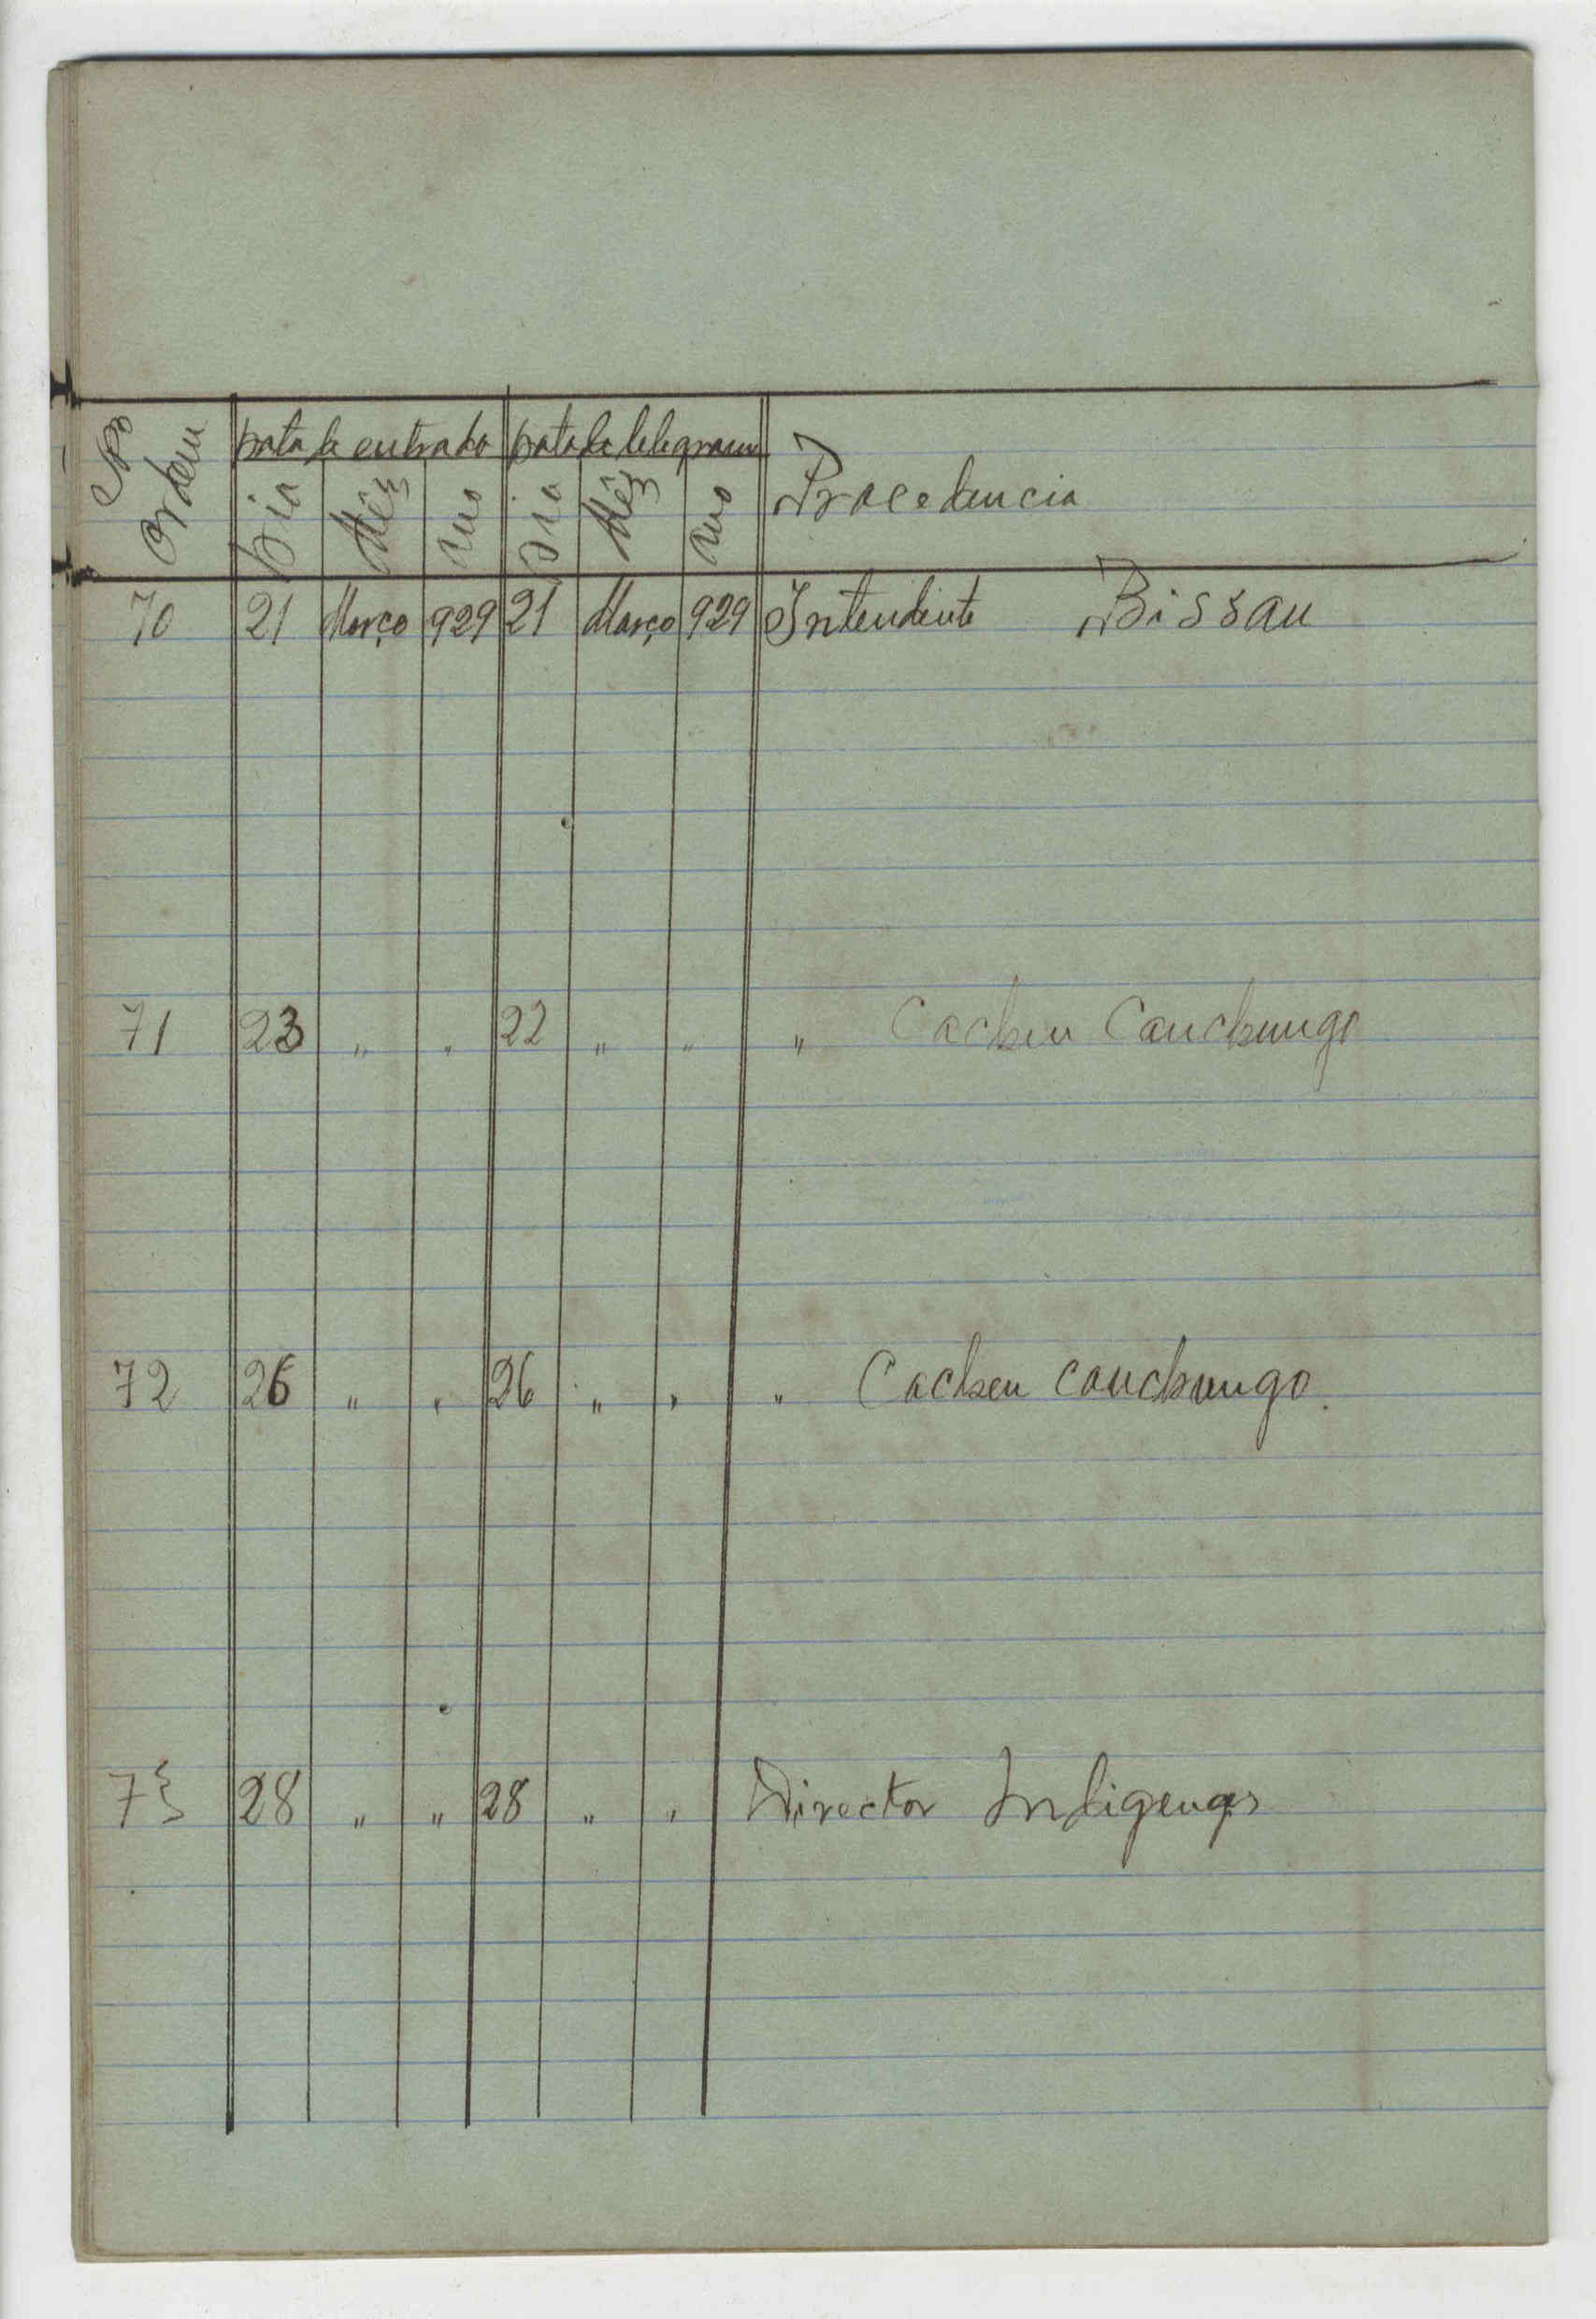 Nº Ordem Data de entrada Data de telegrama Procedencia
Dia Mês Ano Dia Mês Ano
70 21 Março 929 21 Março 929 Intendente Bissau
71 23 " " 22 " " " Cacheu Canchungo
72 26 " " 26 " " " Cacheu Canchungo.
73 28 " " 28 " " Director Indigenas